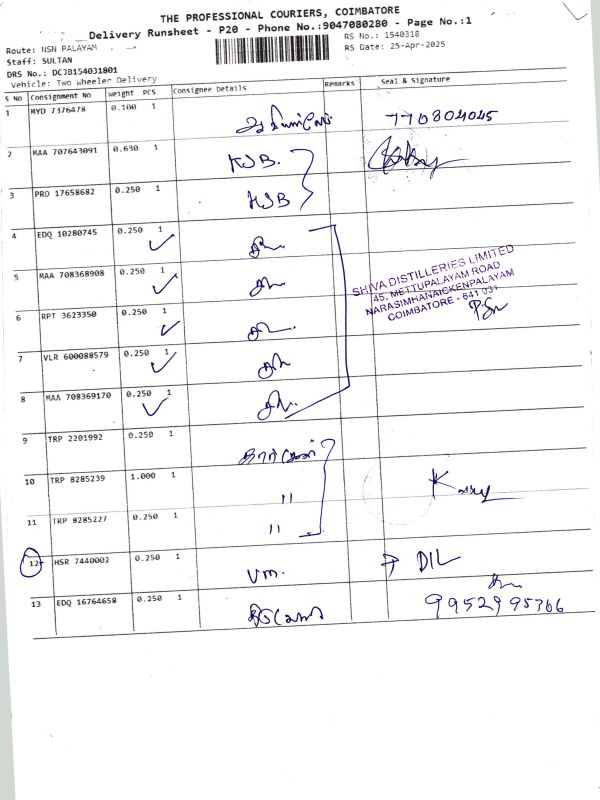 THE PROFESSIONAL COURIERS, COIMBATORE
Delivery Runsheet - P20 - Phone No.:9047080280 - Page No.:1
Route: NSN PALAYAM
RS No.: 1540318
Staff: SULTAN
RS Date: 25-Apr-2025
DRS No.: DCJB154031801
Vehicle: Two Wheeler Delivery
S No Consignment No Weight PCS Consignee Details Remarks Seal & Signature
1 MYD 7376478 0.100 1 770804045
2 MAA 707643091 0.630 1 KJB.
3 PRO 17658682 0.250 1 KJB
4 EDQ 10280745 0.250 1
5 MAA 708368908 0.250 1
SHIVA DISTILLERIES LIMITED
45, METTUPALAYAM ROAD
NARASIMHANAICKENPALAYAM
COIMBATORE - 641 031
6 RPT 3623350 0.250 1
7 VLR 600088579 0.250 1
8 MAA 708369170 0.250 1
9 TRP 2201992 0.250 1
10 TRP 8285239 1.000 1 "
11 TRP 8285227 0.250 1 "
12 HSR 7440002 0.250 1 Vm. → DIL
13 EDQ 16764658 0.250 1 9952995766